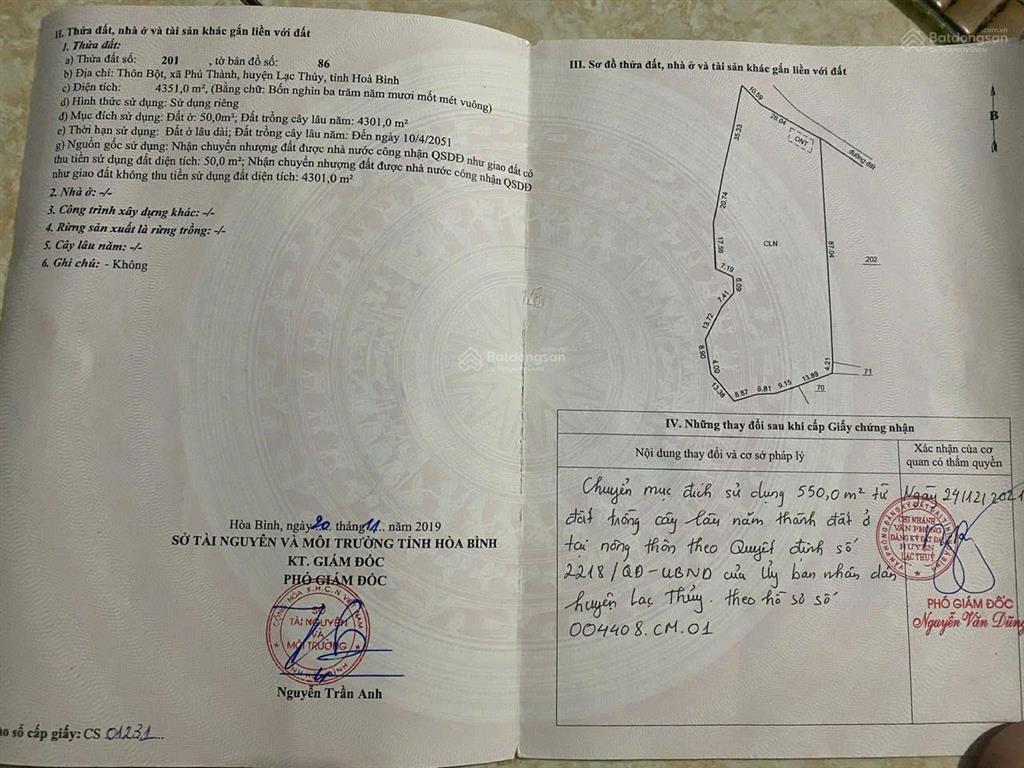 II. Thửa đất, nhà ở và tài sản khác gắn liền với đất
1. Thửa đất:
a) Thửa đất số: 201 , tờ bản đồ số: 86
b) Địa chỉ: Thôn Bột, xã Phú Thành, huyện Lạc Thủy, tỉnh Hoà Bình
c) Diện tích: 4351,0 m², (Bằng chữ: Bốn nghìn ba trăm năm mươi mốt mét vuông)
d) Hình thức sử dụng: Sử dụng riêng
đ) Mục đích sử dụng: Đất ở: 50,0m²; Đất trồng cây lâu năm: 4301,0 m²
e) Thời hạn sử dụng: Đất ở lâu dài; Đất trồng cây lâu năm: Đến ngày 10/4/2051
g) Nguồn gốc sử dụng: Nhận chuyển nhượng đất được nhà nước công nhận QSDĐ như giao đất có
thu tiền sử dụng đất diện tích: 50,0 m²; Nhận chuyển nhượng đất được nhà nước công nhận QSDĐ
như giao đất không thu tiền sử dụng đất diện tích: 4301,0 m²
2. Nhà ở: -/-
3. Công trình xây dựng khác: -/-
4. Rừng sản xuất là rừng trồng: -/-
5. Cây lâu năm: -/-
6. Ghi chú: - Không
Hòa Bình, ngày 20 tháng 11 năm 2019
SỞ TÀI NGUYÊN VÀ MÔI TRƯỜNG TỈNH HÒA BÌNH
KT. GIÁM ĐỐC
PHÓ GIÁM ĐỐC
SỞ
TÀI NGUYÊN
VÀ
MÔI TRƯỜNG
Nguyễn Trần Anh
số cấp giấy: CS 01231
III. Sơ đồ thửa đất, nhà ở và tài sản khác gắn liền với đất
B
10.59
26.04
ONT
đường đất
35.33
20.74
17.56
CLN
87.04
202
7.19
6.09
7.41
13.72
8.90
4.00
13.38
8.87
6.81
9.15
13.89
4.21
70
71
IV. Những thay đổi sau khi cấp Giấy chứng nhận
Nội dung thay đổi và cơ sở pháp lý
Xác nhận của cơ
quan có thẩm quyền
Chuyển mục đích sử dụng 550,0 m² từ
đất trồng cây lâu năm thành đất ở
tại nông thôn theo Quyết định số
2218/QĐ-UBND của Ủy ban nhân dân
huyện Lạc Thủy. theo hồ sơ số
004408.CM.01
Ngày 24/12/2021
CHI NHÁNH
VĂN PHÒNG
ĐĂNG KÝ ĐẤT ĐAI
HUYỆN
LẠC THỦY
PHÓ GIÁM ĐỐC
Nguyễn Văn Dũng
Batdongsan
Batdongsan
Batdongsan